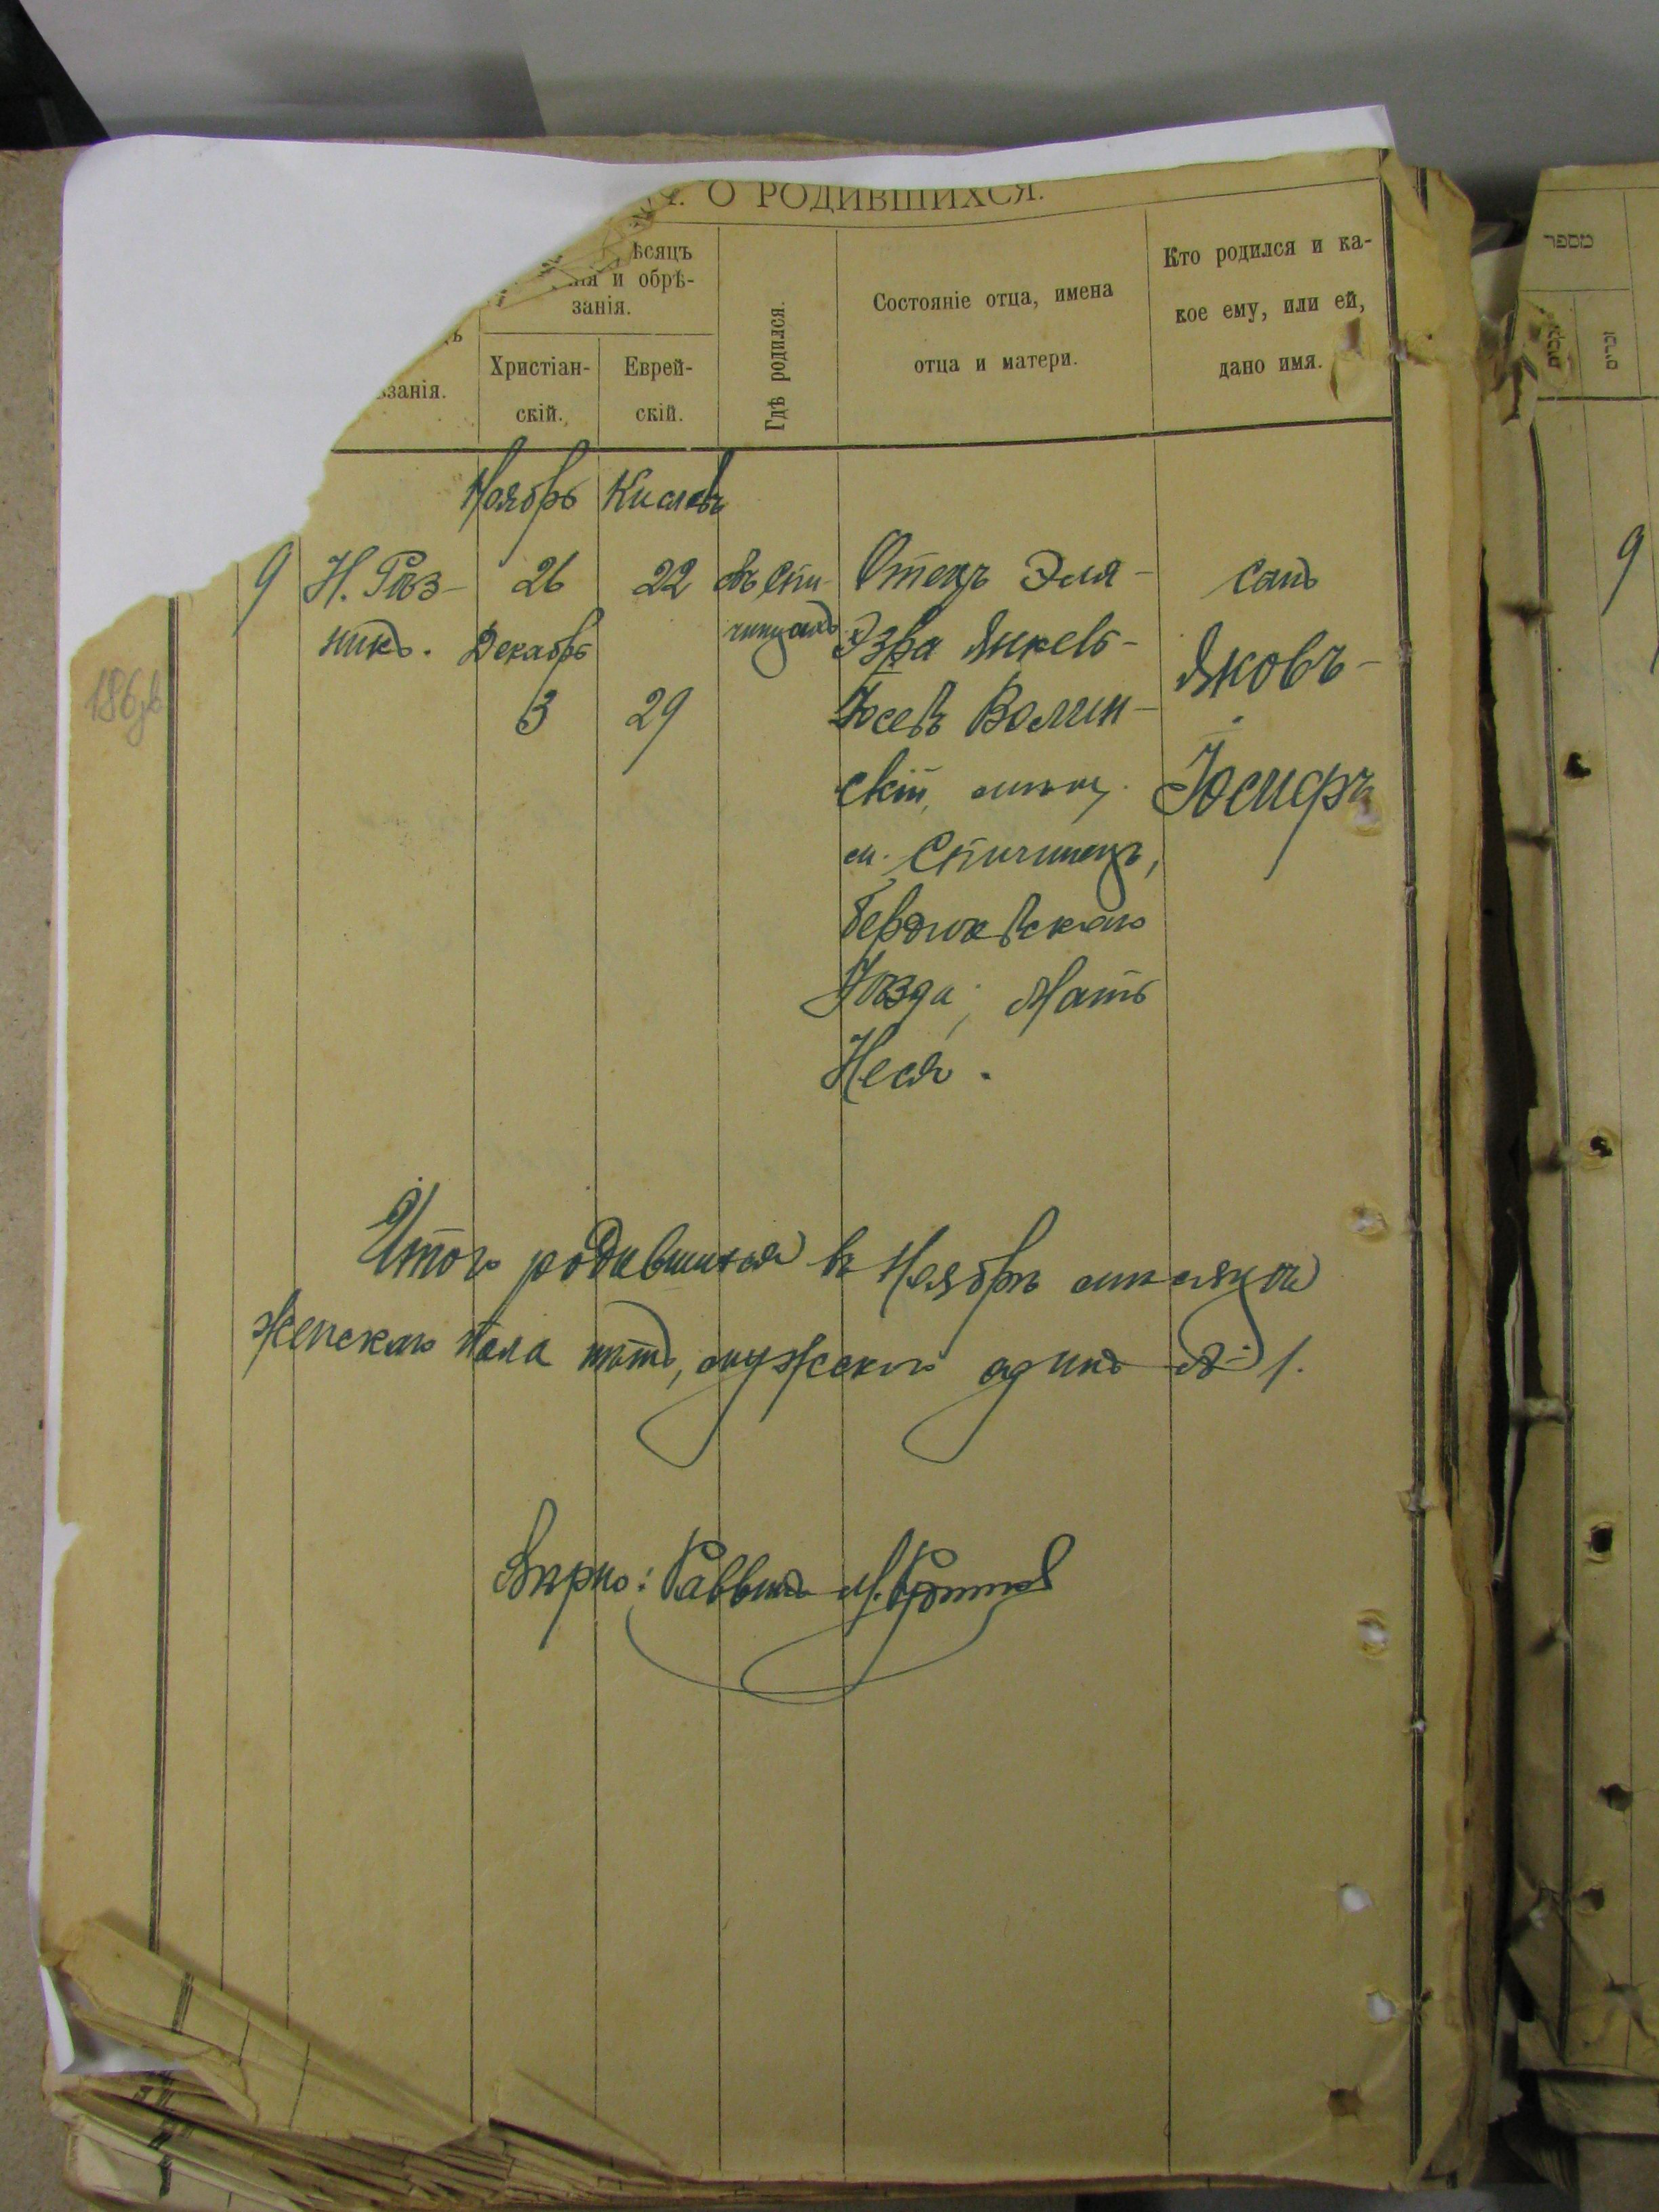 О РОДИВШИХСЯ.
ѣсяцъ
нія и обрѣ-
занія.
ъ
ѣзанія.
Христіан-
скій.
Еврей-
скій.
Гдѣ родился.
Состояніе отца, имена
отца и матери.
Кто родился и ка-
кое ему, или ей,
дано имя.
Ноябрь Кислевъ
9 Н. Рѣз-
никъ.
26 22
Декабрь
3 29
въ Спи-
чинцахъ
Отецъ Эля-
Эзра Янкель-
Іосевъ Волин-
скій, мѣщ.
м. Спичинецъ,
Бердичевскаго
Уѣзда; Мать
Неся.
сынъ
Яковъ-
Іосифъ
186
Итого родившихся въ Ноябрѣ мѣсяцѣ
женскаго пола нѣтъ, мужскаго одинъ № 1.
Вѣрно: Раввинъ М.
מספר
9